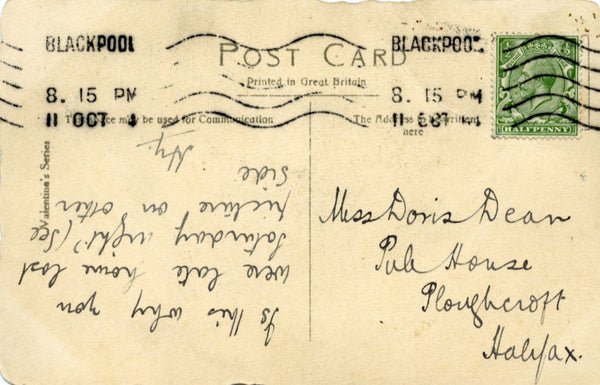 BLACKPOOL
8. 15 PM
11 OCT
BLACKPOOL
8. 15 PM
11 OCT
POST CARD
Printed in Great Britain
HALFPENNY
may be used for Communication
The Address to be written
here
Valentine's Series
Is this why you
were late home last
Saturday night? (See
picture on other
side
Miss Doris Dean
Pule House
Ploughcroft
Halifax.